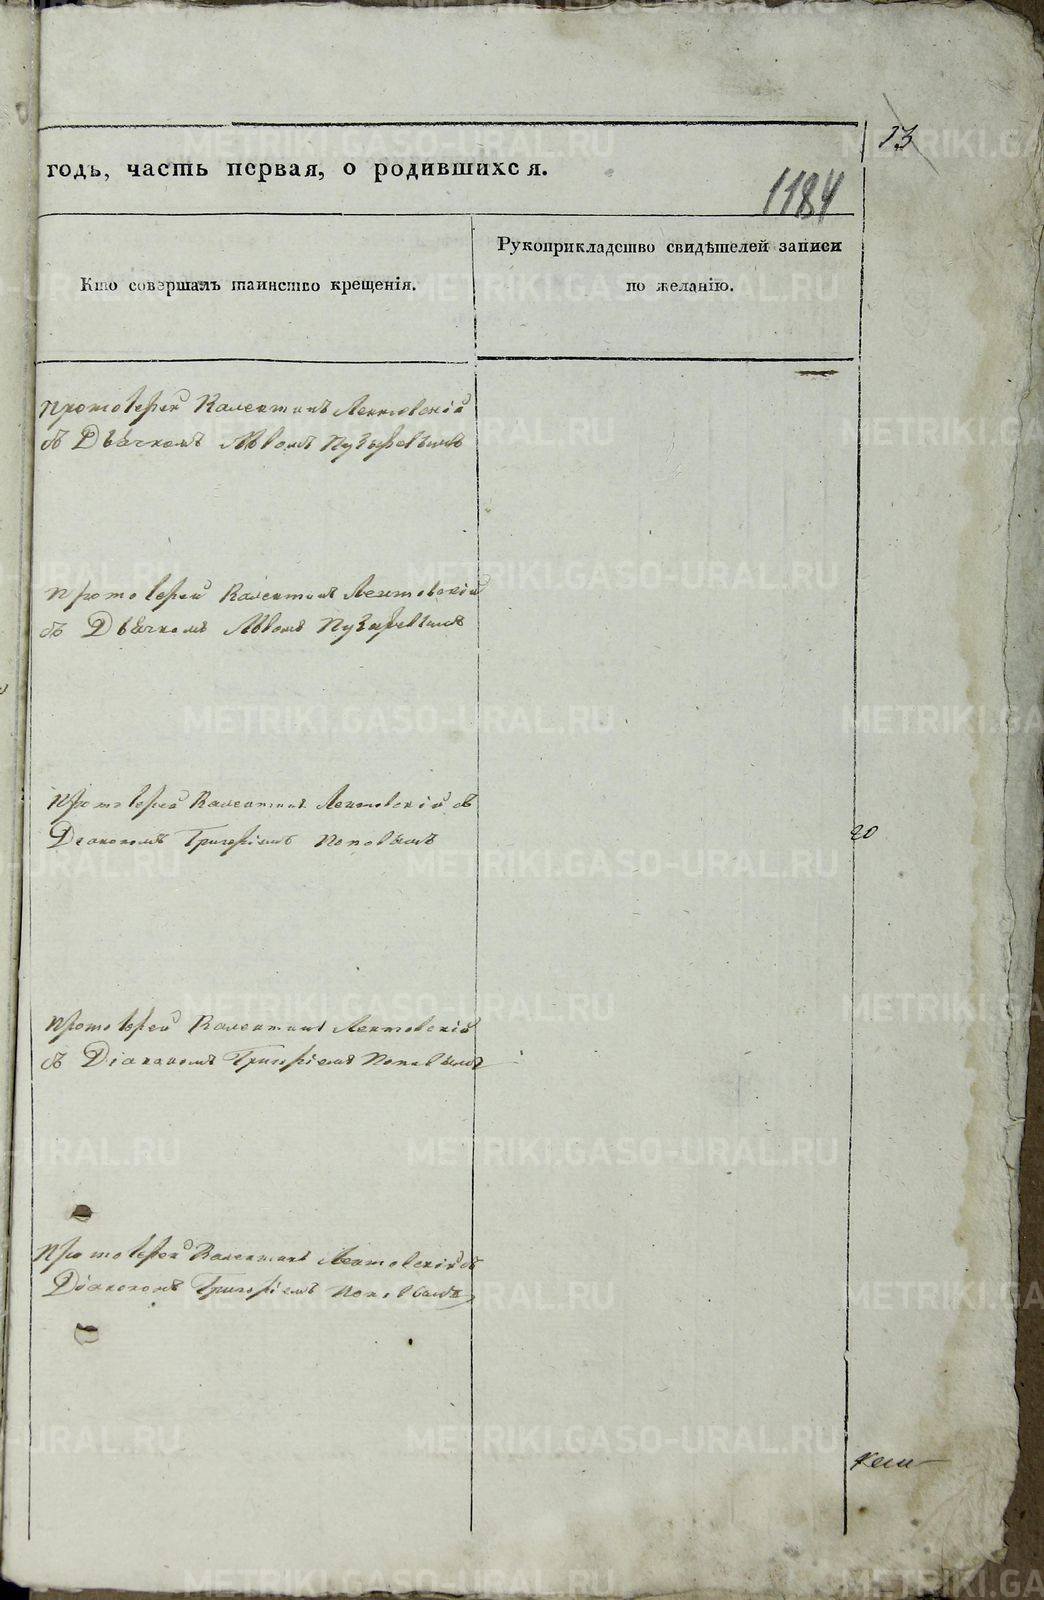 13
годъ, часть первая, о родившихся.
1184
Кто совершалъ таинство крещенія.
Рукоприкладство свидѣтелей записи
по желанію.
Протоіерей Валентинъ Лентовскій
съ Дьячкомъ Львомъ Пузыревымъ
Протоіерей Валентинъ Лентовскій
съ Дьячкомъ Львомъ Пузыревымъ
Протоіерей Валентинъ Лентовскій съ
Діакономъ Григоріемъ Поповымъ
20
Протоіерей Валентинъ Лентовскій
съ Діакономъ Григоріемъ Поповымъ
Протоіерей Валентинъ Лентовскій съ
Діакономъ Григоріемъ Поповымъ
METRIKI.GASO-URAL.RU